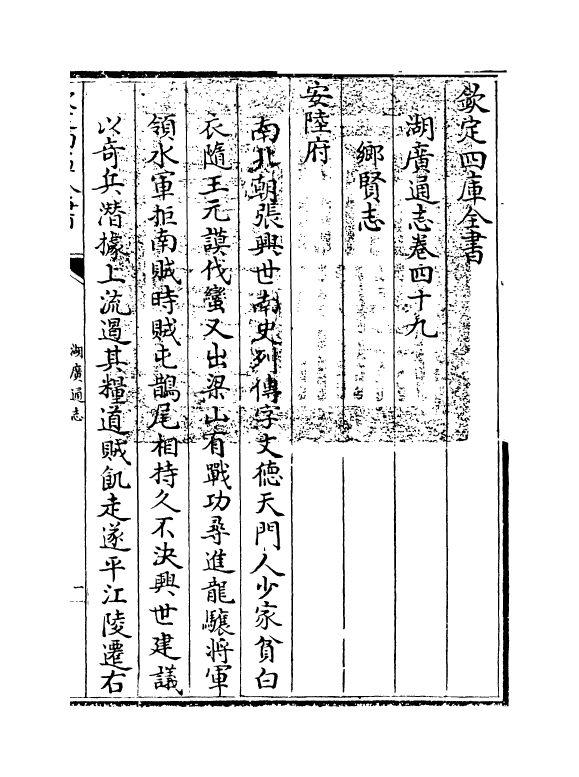 欽定四庫全書
湖廣通志卷四十九
鄉賢志
安陸府
南北朝張興世南史列傳字文德天門人少家貧白
衣隨王元謨伐蠻又出梁山有戰功尋進龍驤將軍
領水軍拒南賊時賊屯鵲尾相持久不決興世建議
以奇兵潛據上流遏其糧道賊飢走遂平江陵遷右
湖廣通志